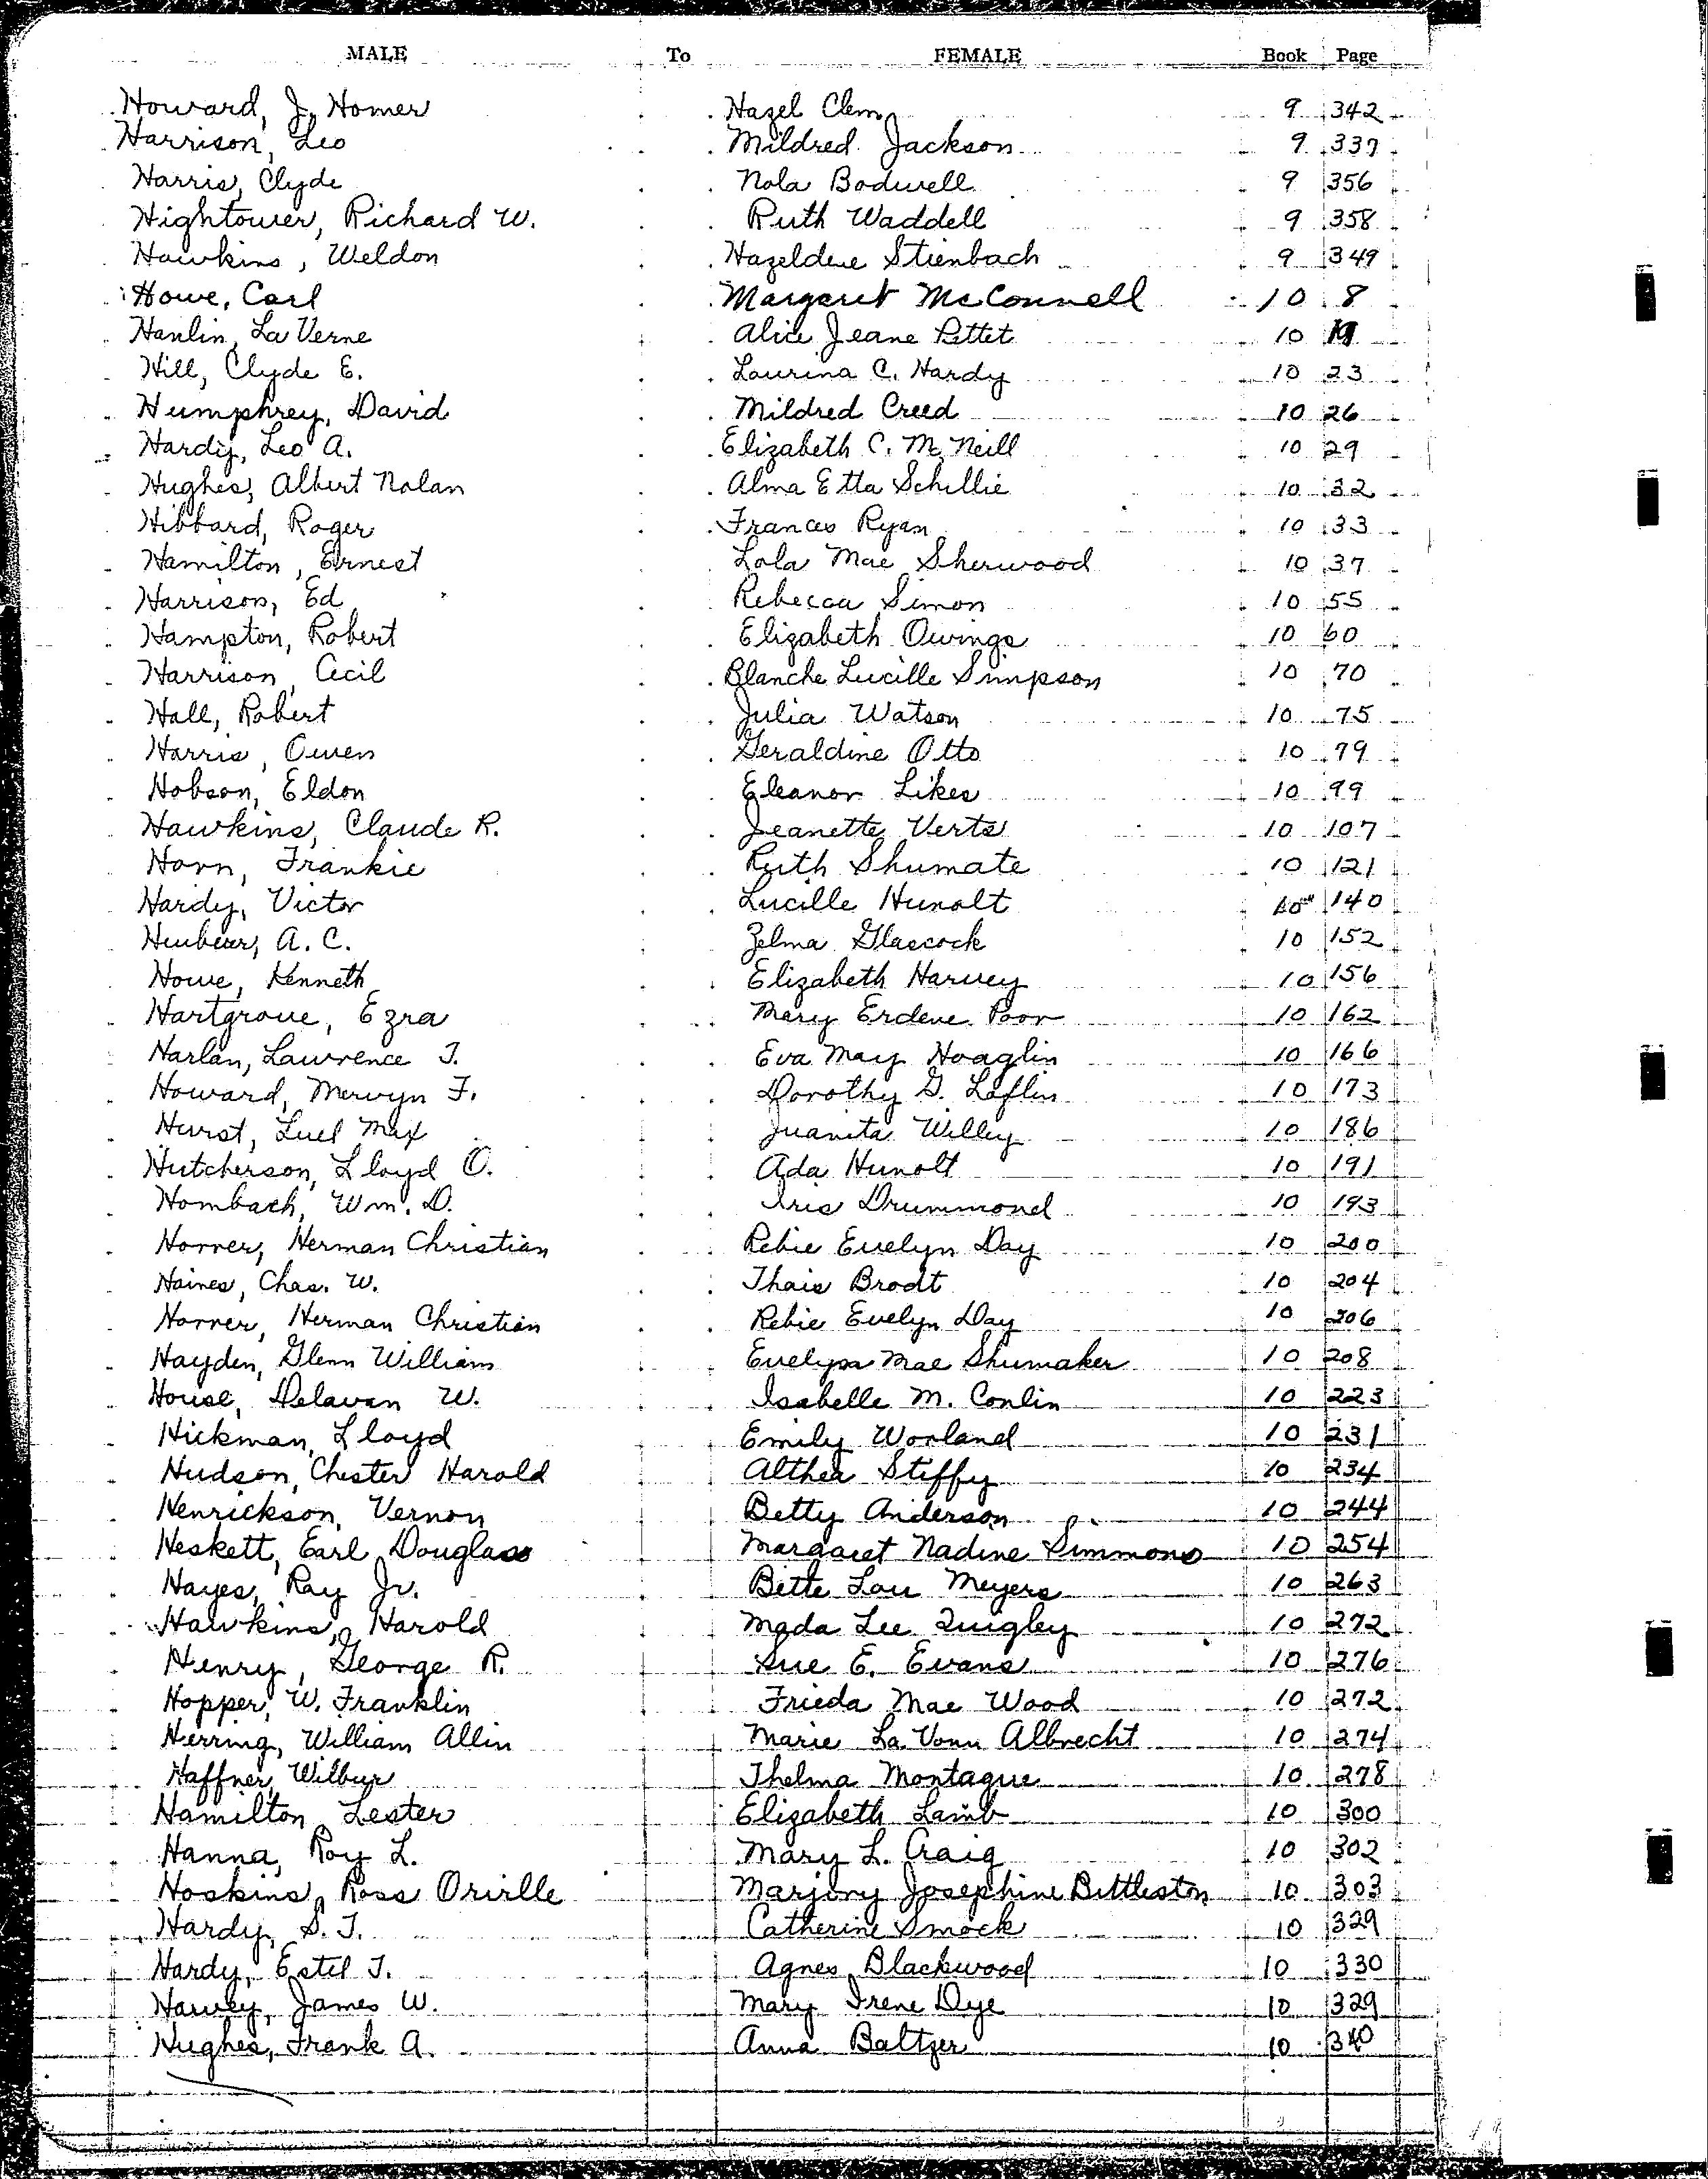 MALE To FEMALE Book Page
Howard, J. Homer Hazel Clem 9 342
Harrison, Leo Mildred Jackson 9 337
Harris, Clyde Nola Bodwell 9 356
Hightower, Richard W. Ruth Waddell 9 358
Hawkins, Weldon Hazeldene Stienbach 9 349
Howe, Carl Margaret McConnell 10 8
Hanlin, La Verne Alice Jeane Pettet 10
Hill, Clyde E. Laurina C. Hardy 10 23
Humphrey, David Mildred Creed 10 26
Hardy, Leo A. Elizabeth C. McNeill 10 29
Hughes, Albert Nolan Alma Etta Schillie 10 32
Hibbard, Roger Frances Ryan 10 33
Hamilton, Ernest Lola Mae Sherwood 10 37
Harrison, Ed Rebecca Simon 10 55
Hampton, Robert Elizabeth Owings 10 60
Harrison, Cecil Blanche Lucille Simpson 10 70
Hall, Robert Julia Watson 10 75
Harris, Owen Geraldine Otto 10 79
Hobson, Eldon Eleanor Likes 10 99
Hawkins, Claude R. Jeanette Verts 10 107
Horn, Frankie Ruth Shumate 10 121
Hardy, Victor Lucille Hunolt 10 140
A. C. Zelma Glascock 10 152
Howe, Kenneth Elizabeth Harvey 10 156
Hartgrove, Ezra Mary Erdene Poor 10 162
Harlan, Lawrence T. Eva May Hoaglin 10 166
Howard, Mervyn F. Dorothy G. Laflin 10 173
Hurst, Luel Max Juanita Willey 10 186
Hutcherson, Lloyd O. Ada Hunolt 10 191
Hombach, Wm. D. Iris Drummond 10 193
Horner, Herman Christian Rebie Evelyn Day 10 200
Haines, Chas. W. Thais Brodt 10 204
Horner, Herman Christian Rebie Evelyn Day 10 206
Hayden, Glenn William Evelyn Mae Shumaker 10 208
House, Delavan W. Isabelle M. Conlin 10 223
Hickman, Lloyd Emily Worland 10 231
Hudson, Chester Harold Althea Steffy 10 234
Henrickson, Vernon Betty Anderson 10 244
Heskett, Earl Douglass Margaret Nadine Simmons 10 254
Hayes, Ray Jr. Bette Lou Meyers 10 263
Hawkins, Harold Mada Lee Quigley 10 272
Henry, George R. Sue E. Evans 10 276
Hopper, W. Franklin Frieda Mae Wood 10 272
Herring, William Allin Marie La Vonn Albrecht 10 274
Haffner, Wilbur Thelma Montague 10 278
Hamilton, Lester Elizabeth Lamb 10 300
Hanna, Roy L. Mary L. Craig 10 302
Hoskins, Ross Orville Marjory Josephine Bittleston 10 303
Hardy, S. T. Catherine Smock 10 329
Hardy, Estel T. Agnes Blackwood 10 330
Harvey, James W. Mary Irene Dye 10 329
Hughes, Frank A. Anna Baltzer 10 340